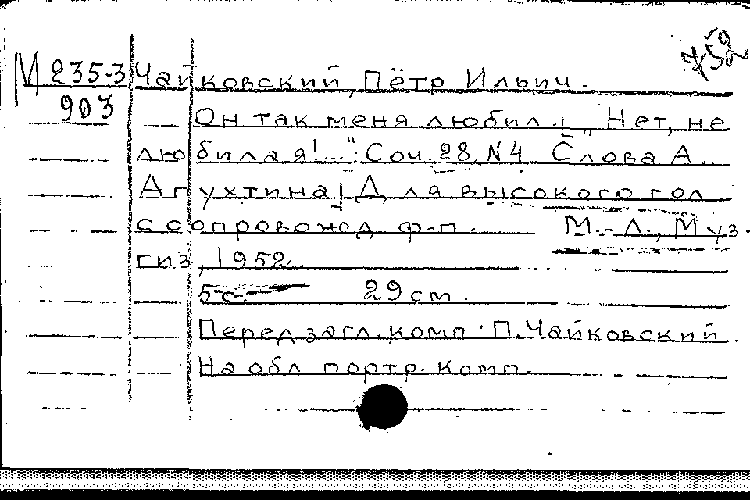 752
М 235-3 Чайковский, Пётр Ильич.
903 Он так меня любил! „Нет, не
любила я!..." Соч. 28, N4 Слова А.
Апухтина| Для высокого гол.
с сопровожд. ф-п. М.-Л., Муз-
гиз, 1952.
5 с. 29 см.
Перед загл. комп.: П. Чайковский.
На обл. портр. комп.